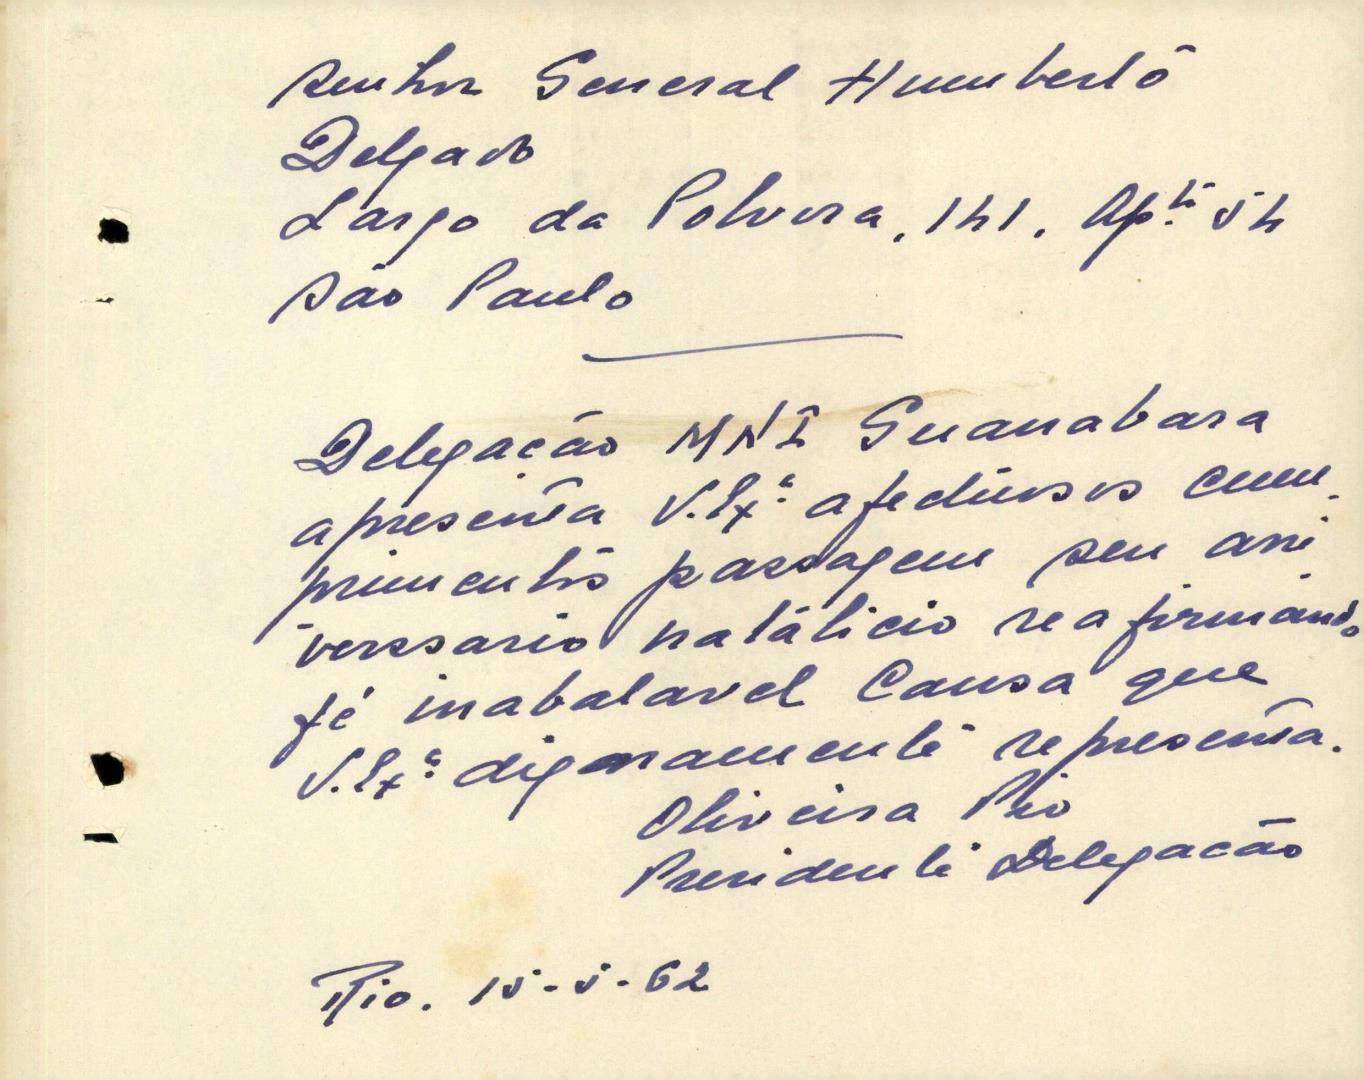 Senhor General Humberto
Delgado
Largo da Polvora, 141, Ap.to 54
São Paulo
Delegação MNI Guanabara
apresenta V. Ex.a afectuosos cum-
primentos passagem seu ani
verssario natálicio reafirmando
fé inabalavel Causa que
V. Ex.a dignamente representa.
Oliveira Pio
Presidente Delegação
Rio. 15-5-62